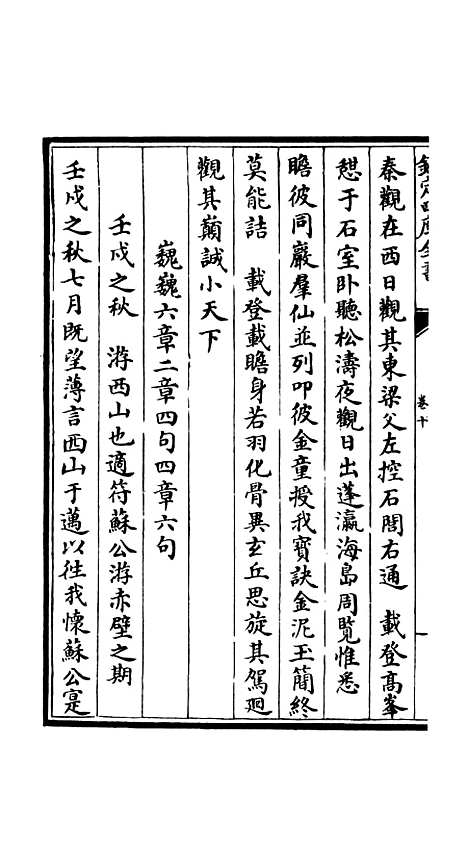 欽定四庫全書
卷十
秦觀在西日觀其東梁父左控石閭右通　載登髙峯
憇于石室卧聽松濤夜觀日出蓬瀛海島周覽惟悉
瞻彼同巖羣仙並列叩彼金童授我寳訣金泥玉簡終
莫能詰　載登載瞻身若羽化骨異𤣥丘思旋其駕廻
觀其巔誠小天下
巍巍六章二章四句四章六句
壬戌之秋　游西山也適符蘇公游赤壁之期
壬戌之秋七月既望薄言西山于邁以徃我懷蘇公寔